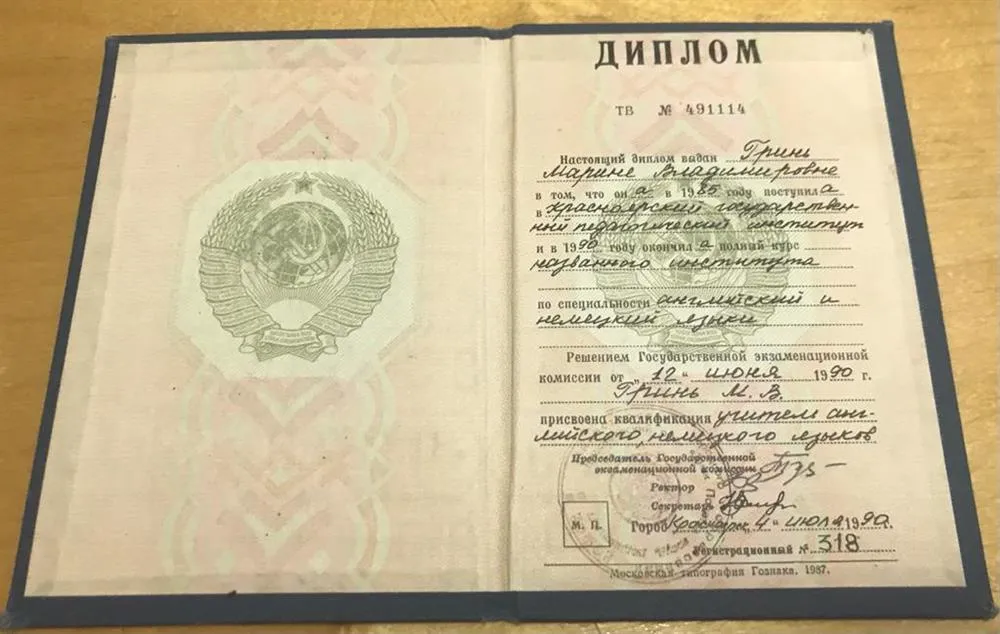 ДИПЛОМ
ТВ № 491114
Настоящий диплом выдан Гринь
Марине Владимировне
в том, что он а в 1985 году поступил а
в Красноярский государствен-
ный педагогический институт
и в 1990 году окончил а полный курс
названного института
по специальности английский и
немецкий языки
Решением Государственной экзаменационной
комиссии от „12“ июня 1990 г.
Гринь М. В.
присвоена квалификация учителя анг-
лийского, немецкого языков
Председатель Государственной
экзаменационной комиссии
Ректор
Секретарь
М. П.
Город Красноярск „4“ июля 1990 г.
Регистрационный № 318
Московская типография Гознака. 1987.